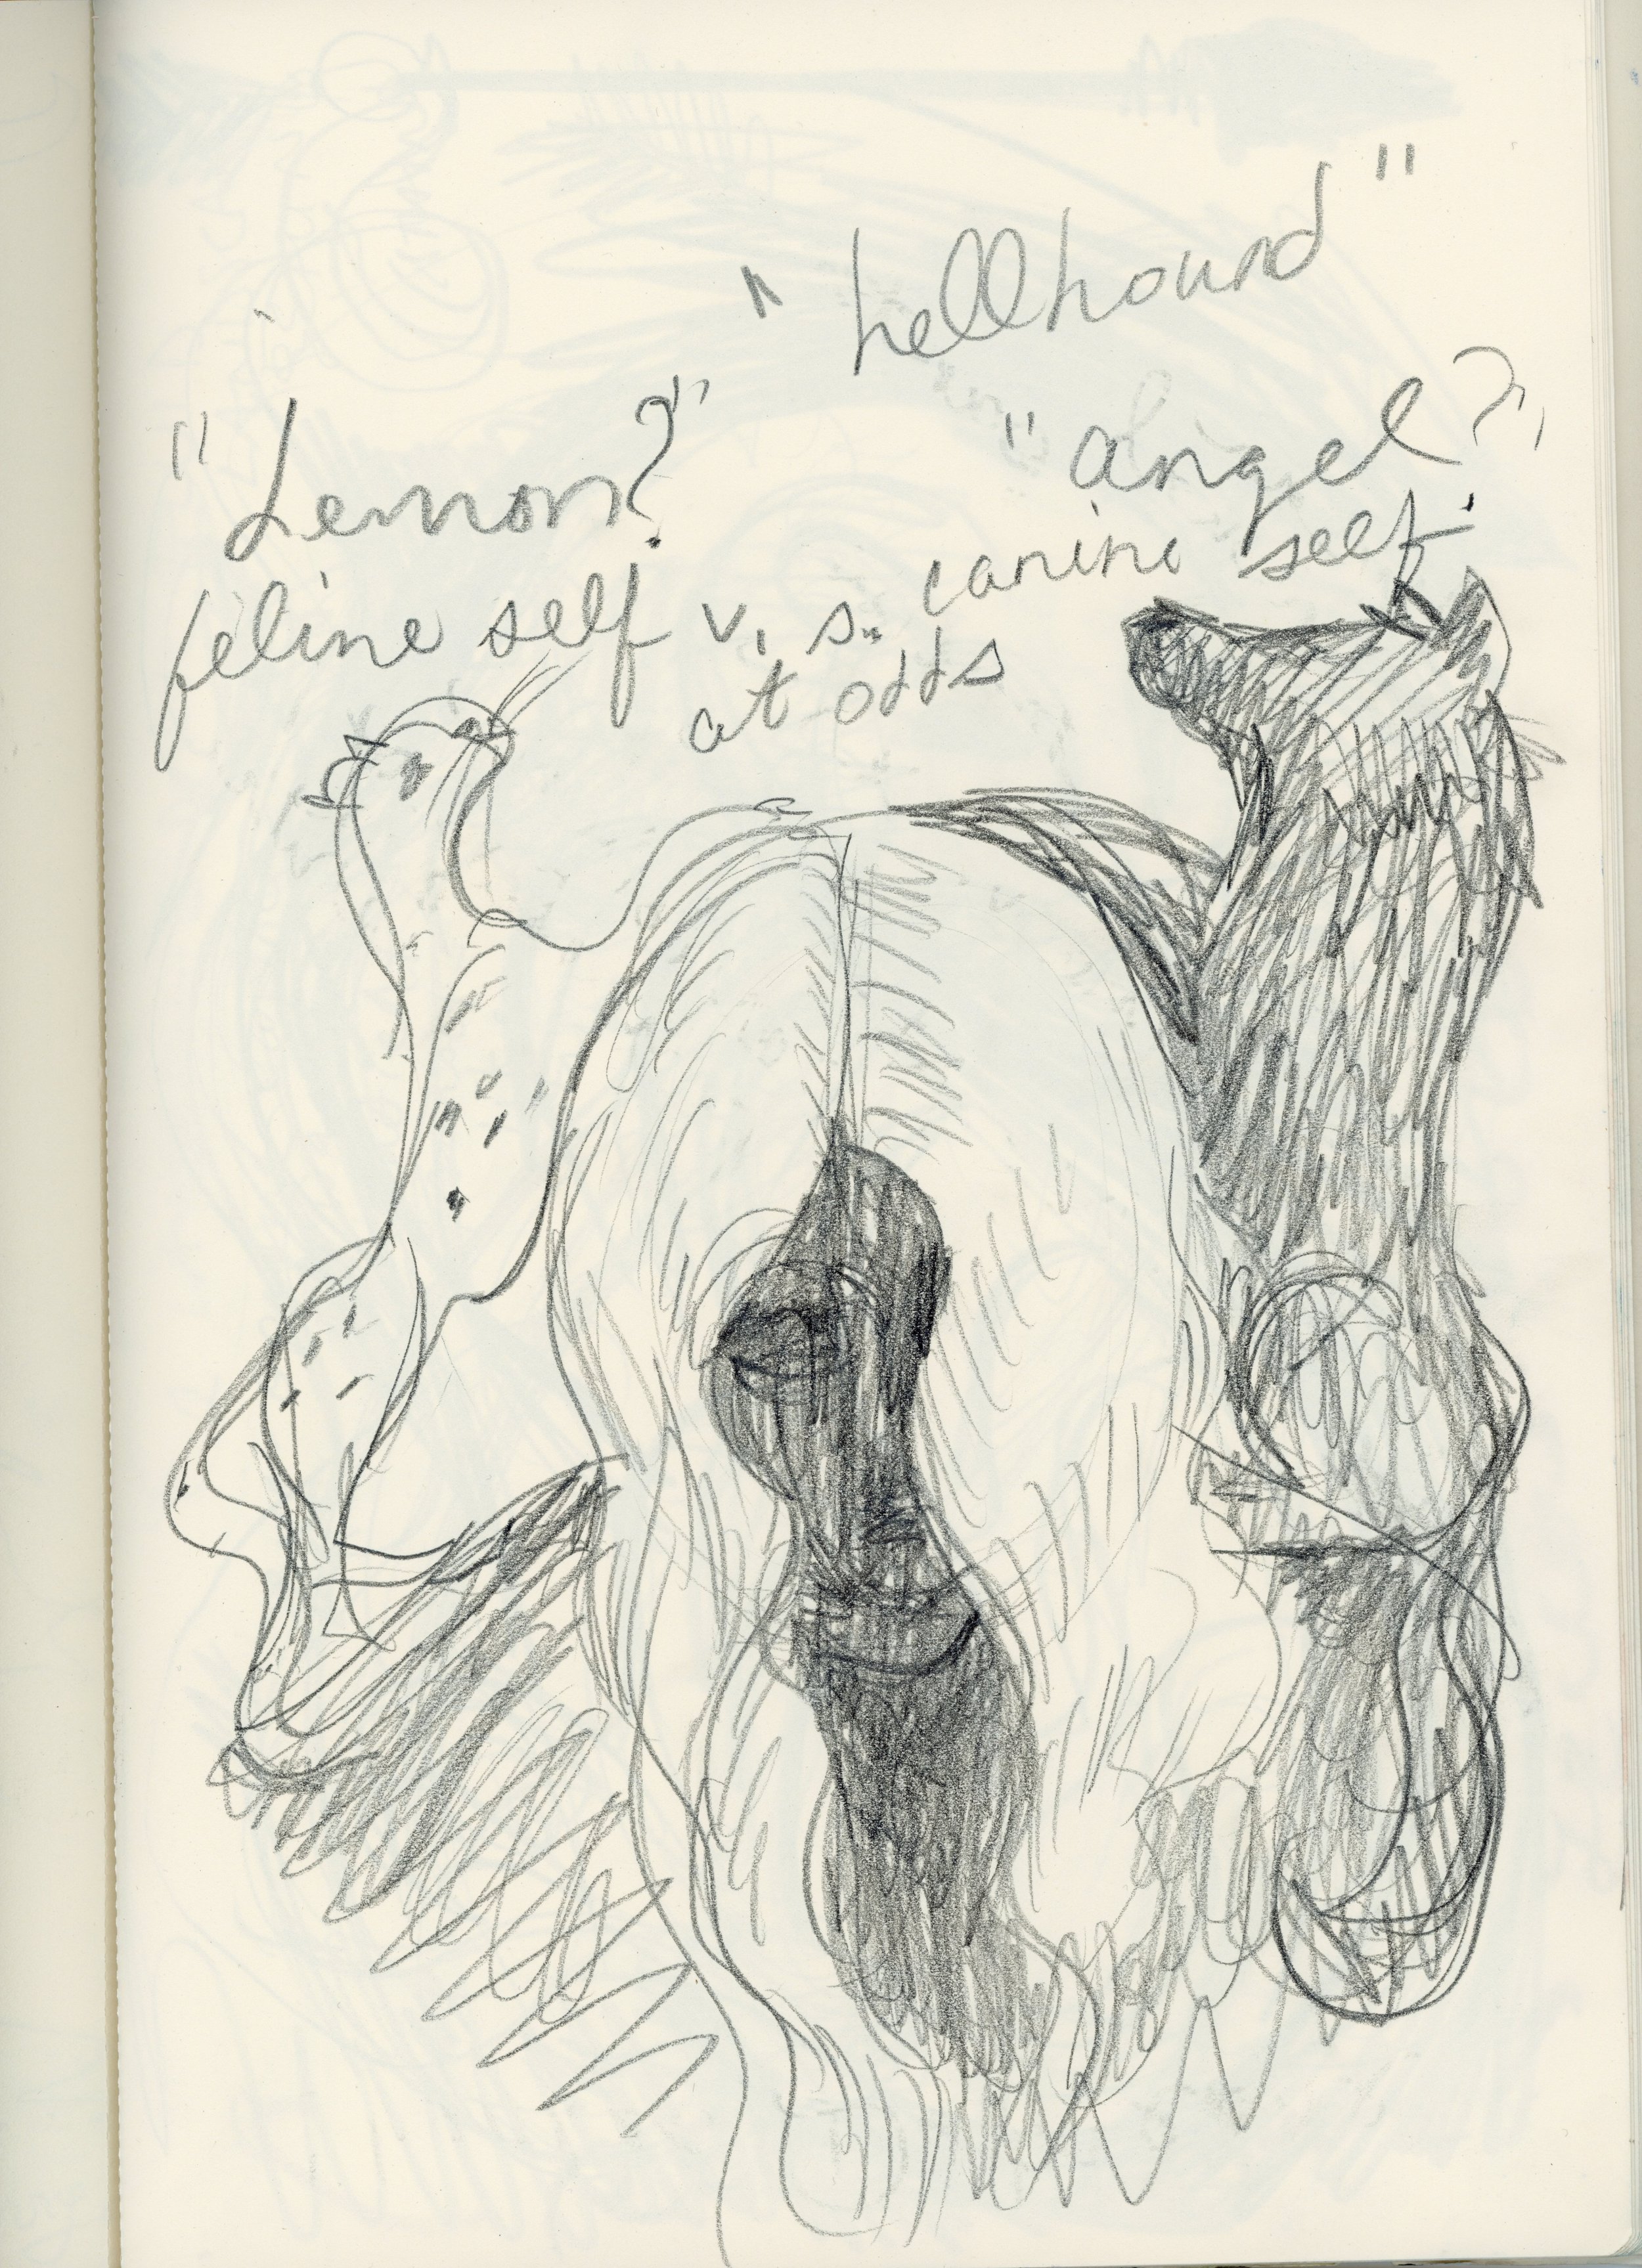 "hellhound"
"demon?" "angel?"
feline self v.s. canine self
at odds